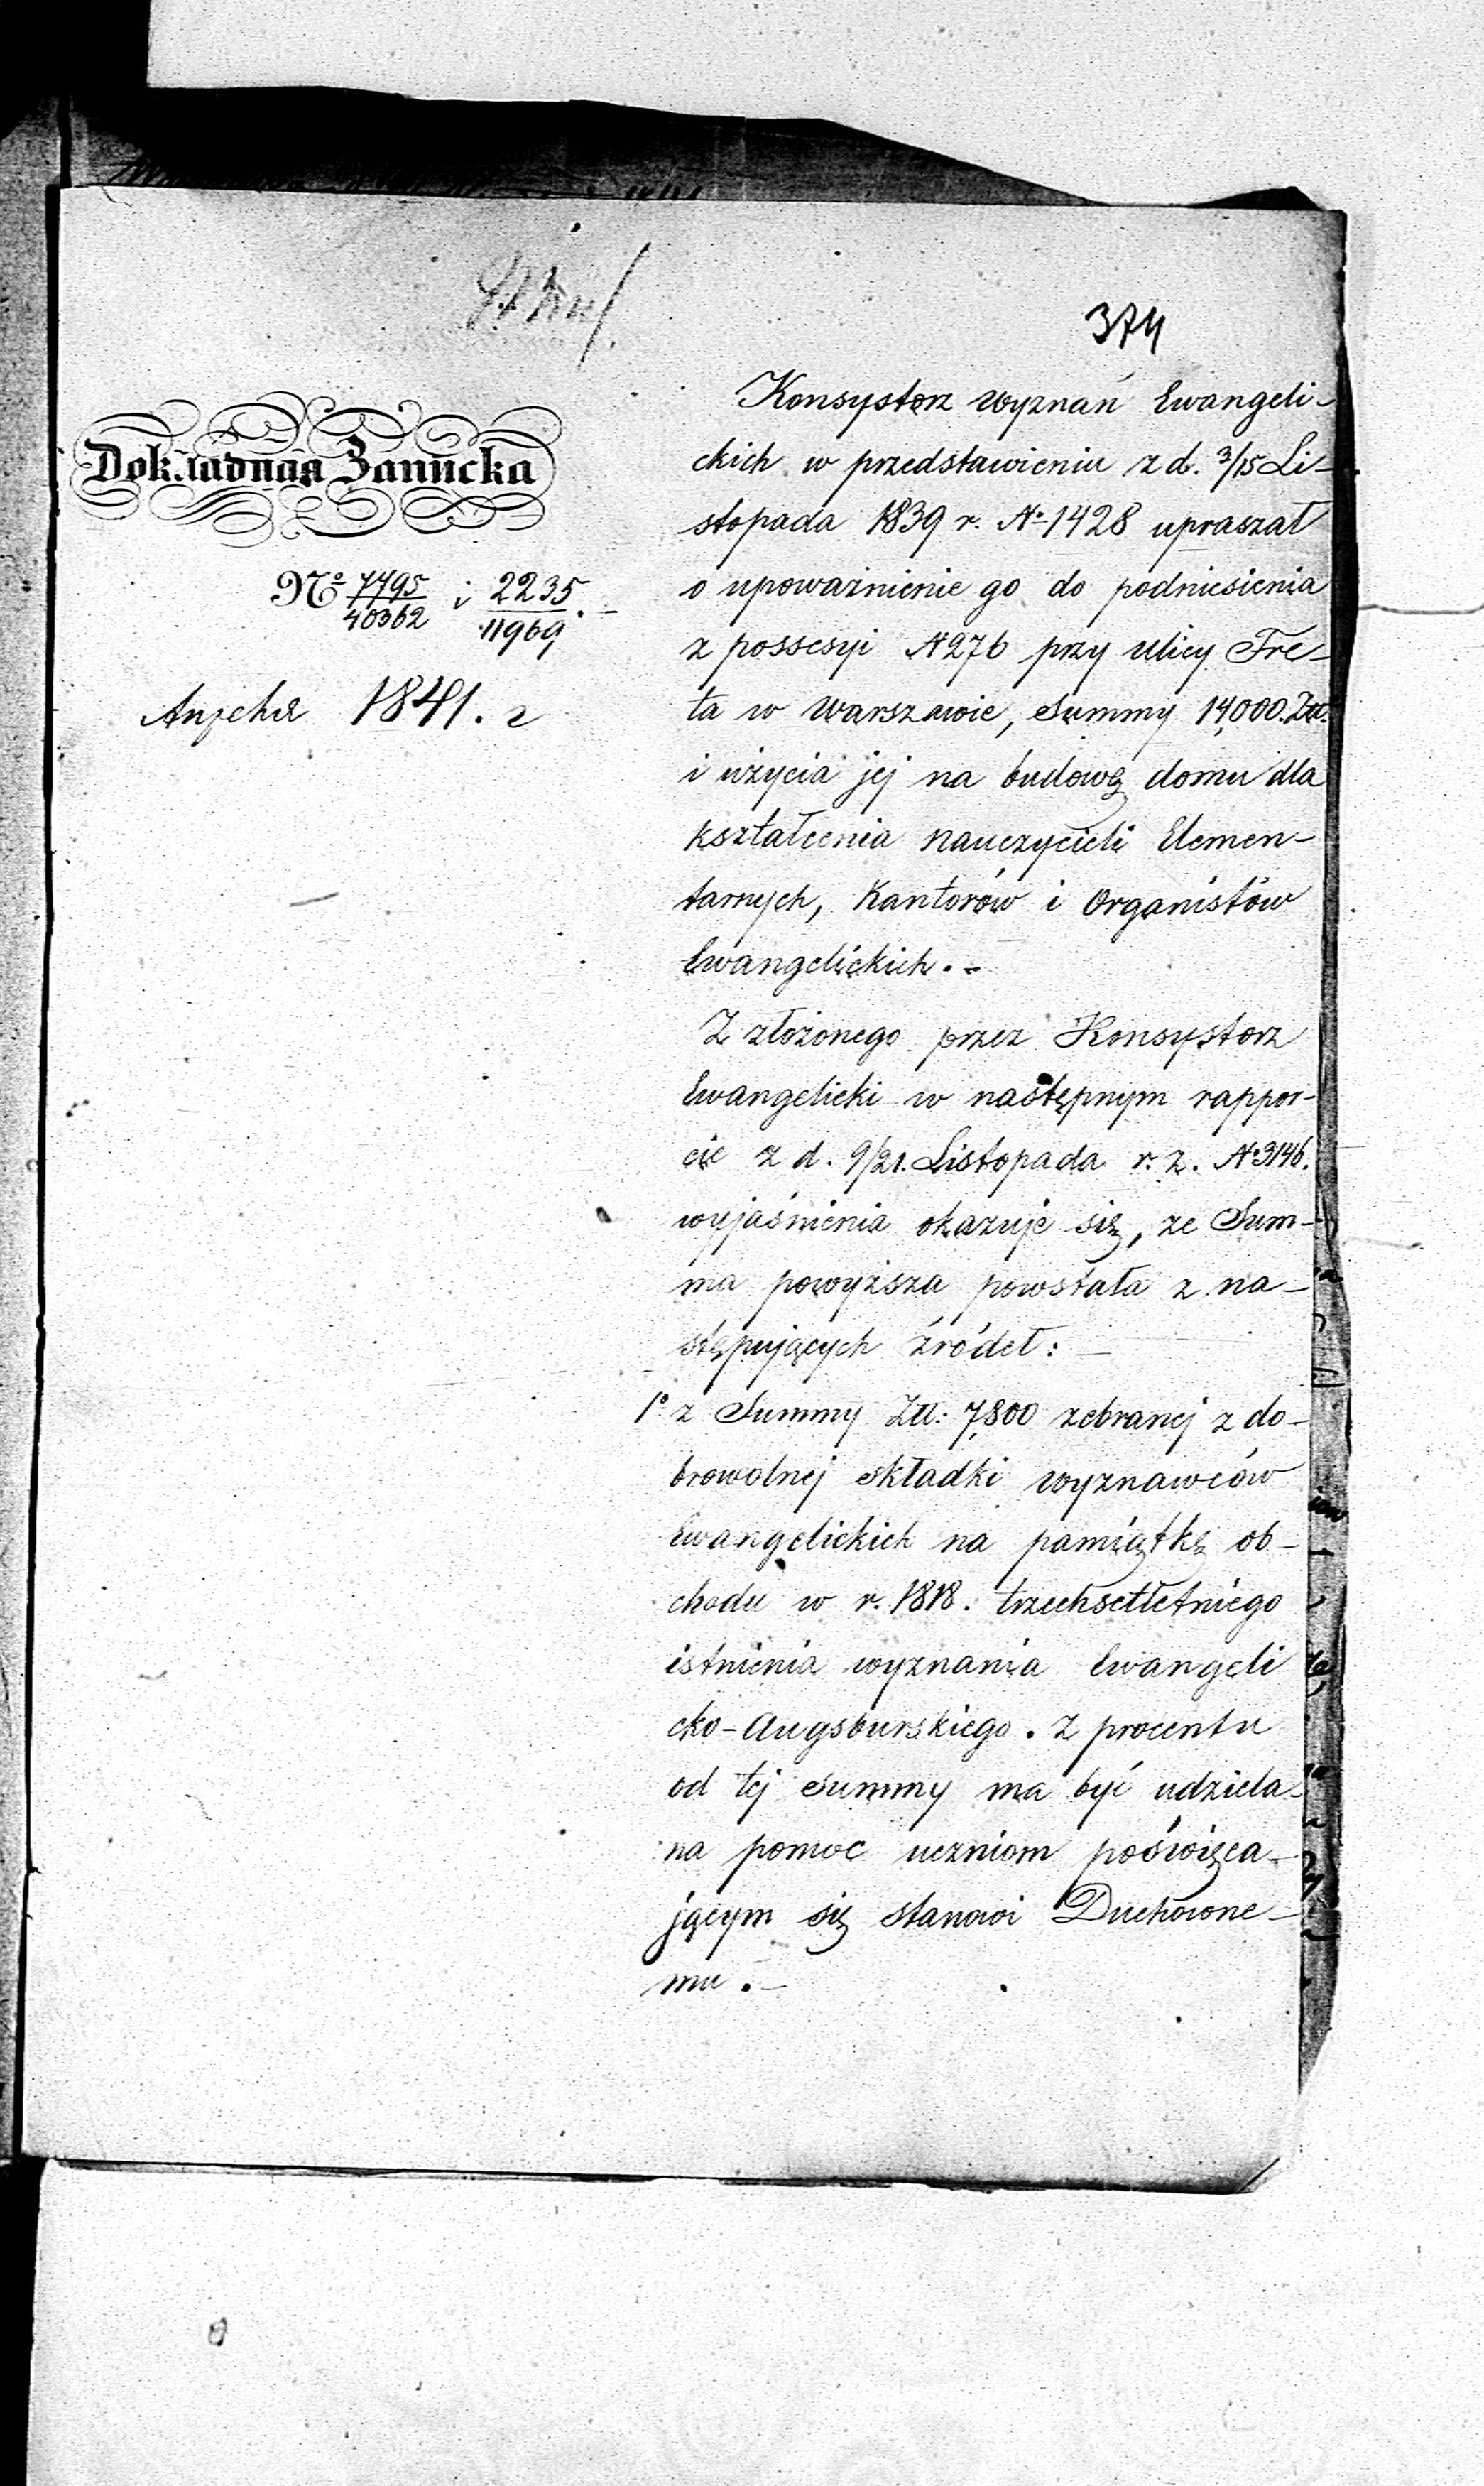 374
Докладная Записка
№ 7795/40362 i 2235/11969.
Апреля 1841. г
Konsystorz wyznań Ewangeli-
ckich w przedstawieniu z d. 3/15 Li-
stopada 1839 r. № 1428 upraszał
o upoważnienie go do podniesienia
z possesyi № 276 przy ulicy Fre-
ta w Warszawie, Summy 14,000. Zł.
i użycia jej na budowę domu dla
kształcenia nauczycieli Elemen-
tarnych, Kantorów i Organistów
Ewangelickich. -
Z złożonego przez Konsystorz
Ewangelicki w następnym rappor-
cie z d. 9/21. Listopada r. z. № 3146.
wyjaśnienia okazuje się, że Sum-
ma powyższa powstała z na-
stępujących źródeł: -
1° z Summy Zł: 7,800 zebranej z do-
browolnej składki wyznawców
Ewangelickich na pamiątkę ob-
chodu w r. 1818. trzechsetletniego
istnienia wyznania Ewangeli
cko-Augsburskiego. Z procentu
od tej summy ma być udziela-
na pomoc uczniom poświęca-
jącym się stanowi Duchowne-
mu. -